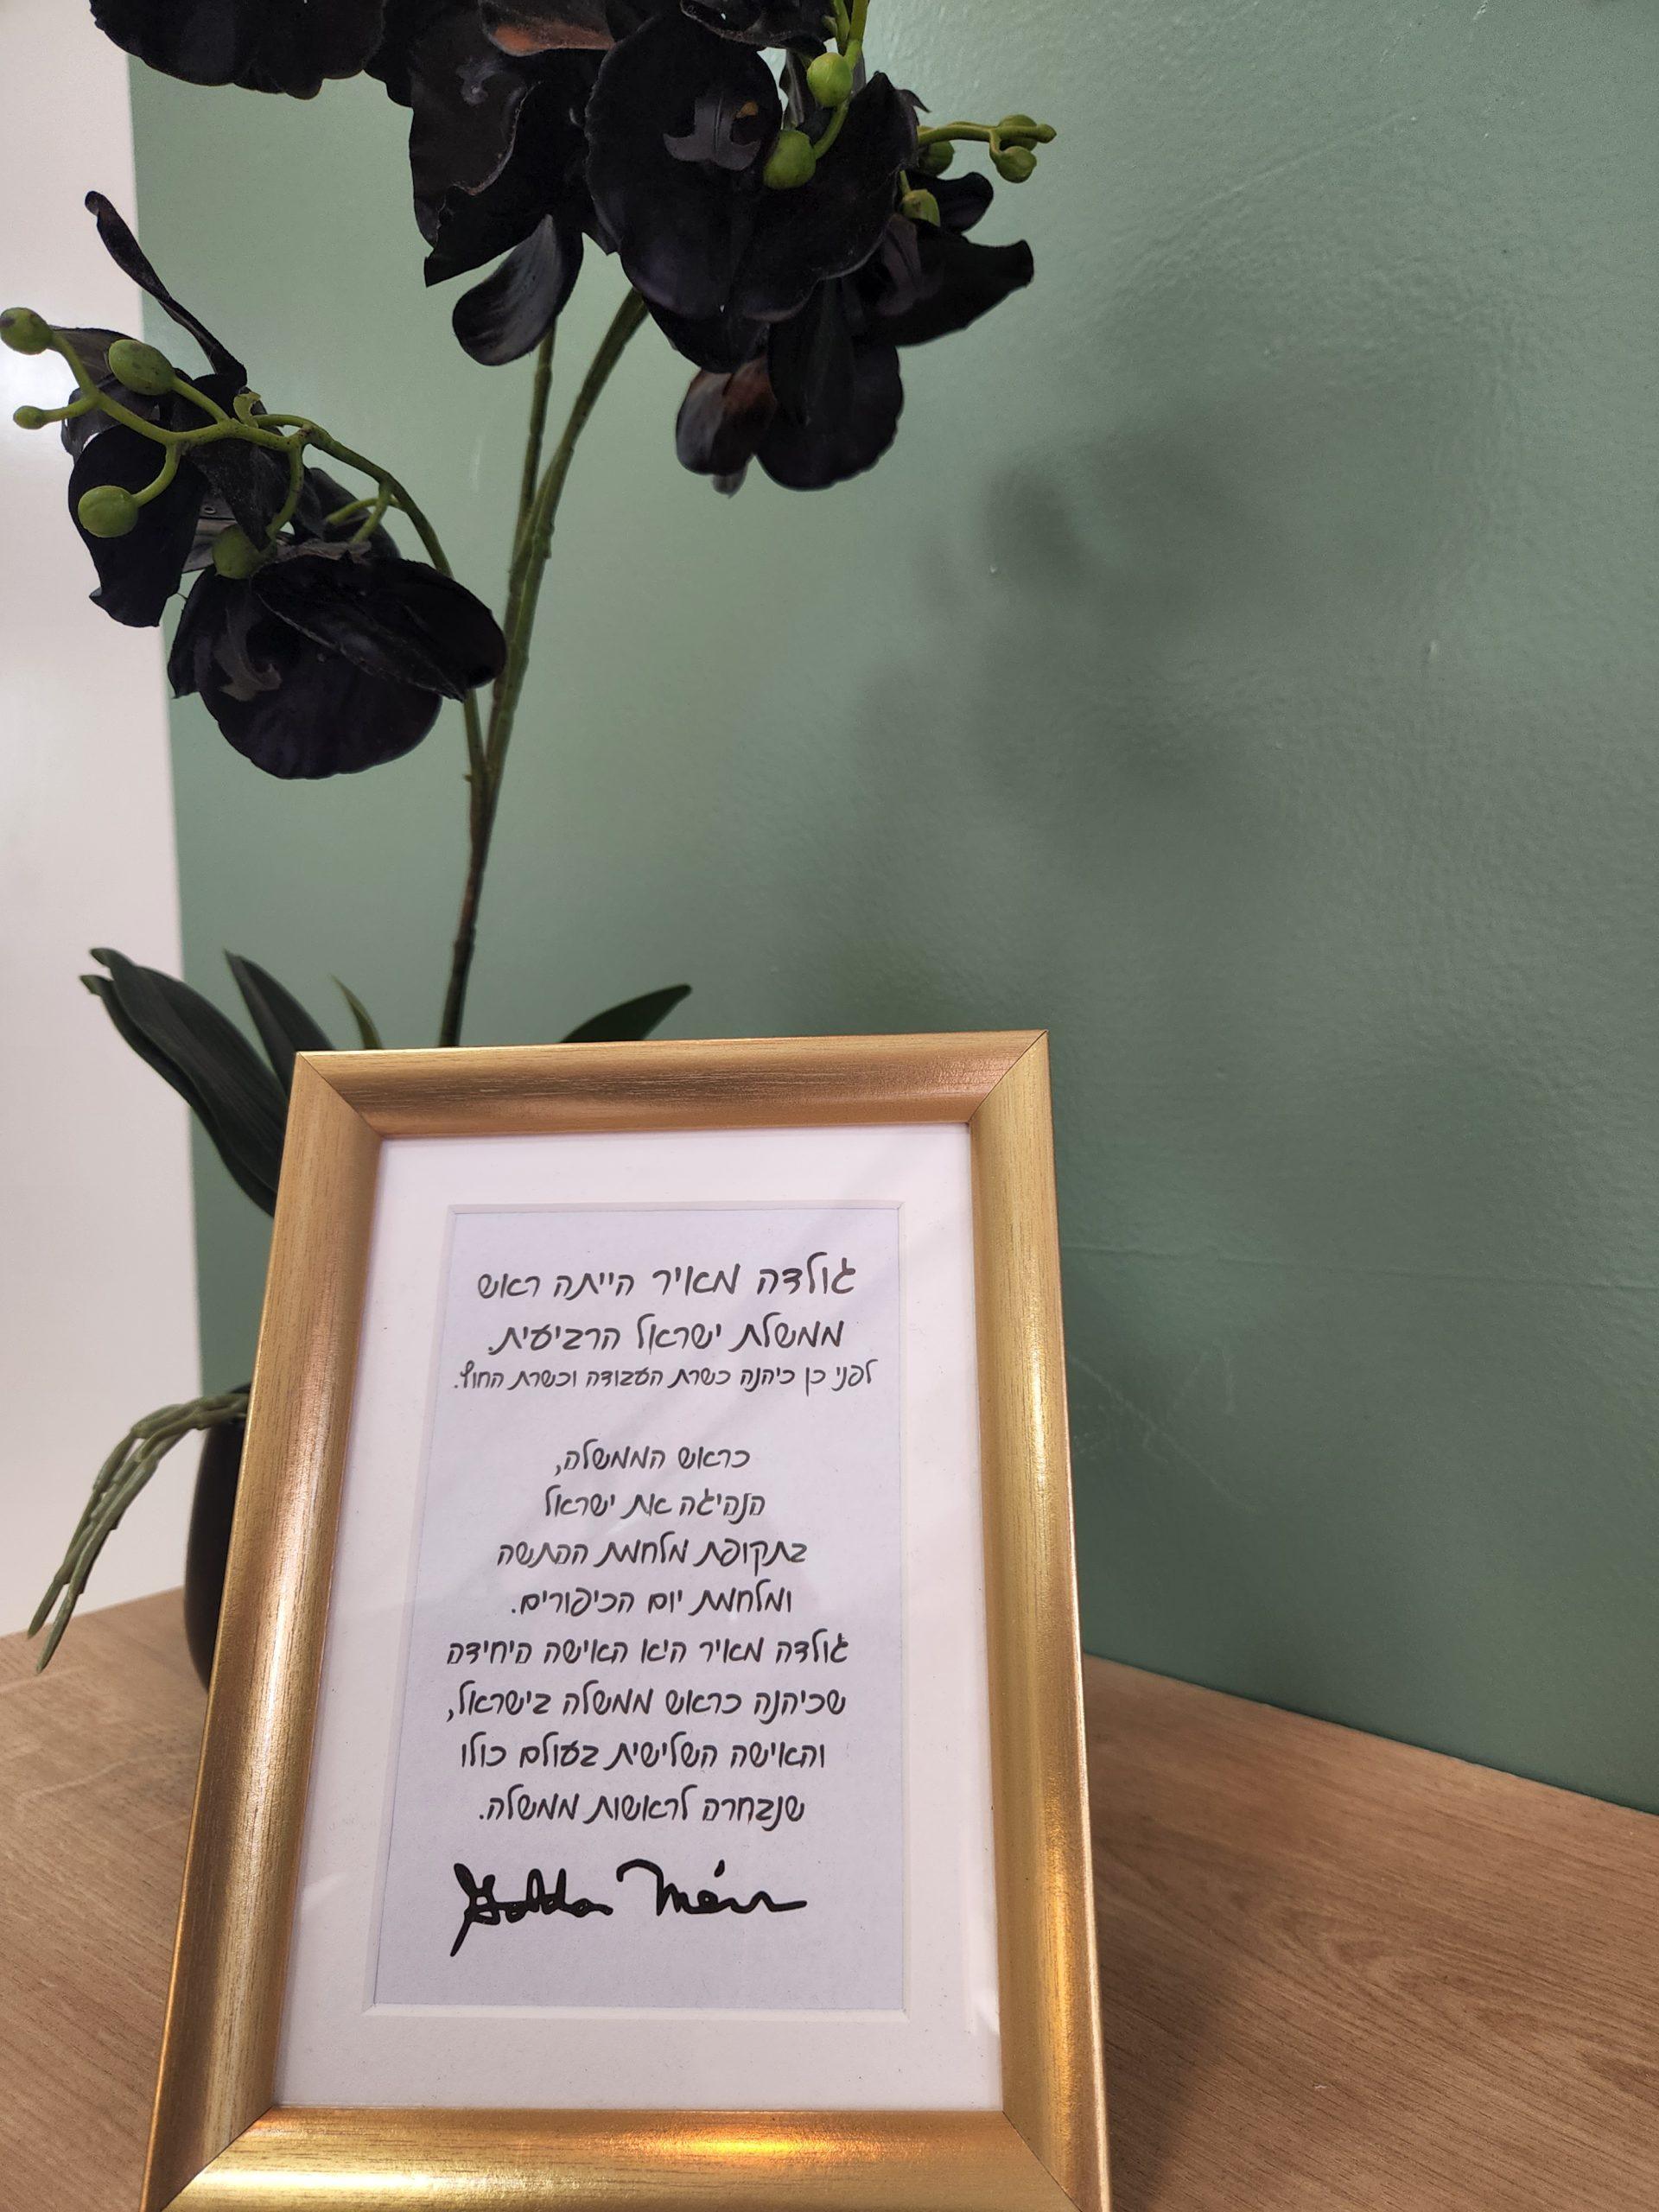 גולדה מאיר הייתה ראש
ממשלת ישראל הרביעית.
לפני כן כיהנה כשרת העבודה וכשרת החוץ.
כראש הממשלה,
הנהיגה את ישראל
בתקופת מלחמת ההתשה
ומלחמת יום הכיפורים.
גולדה מאיר היא האישה היחידה
שכיהנה כראש ממשלה בישראל,
והאישה השלישית בעולם כולו
שנבחרה לראשות ממשלה.
Golda Meir